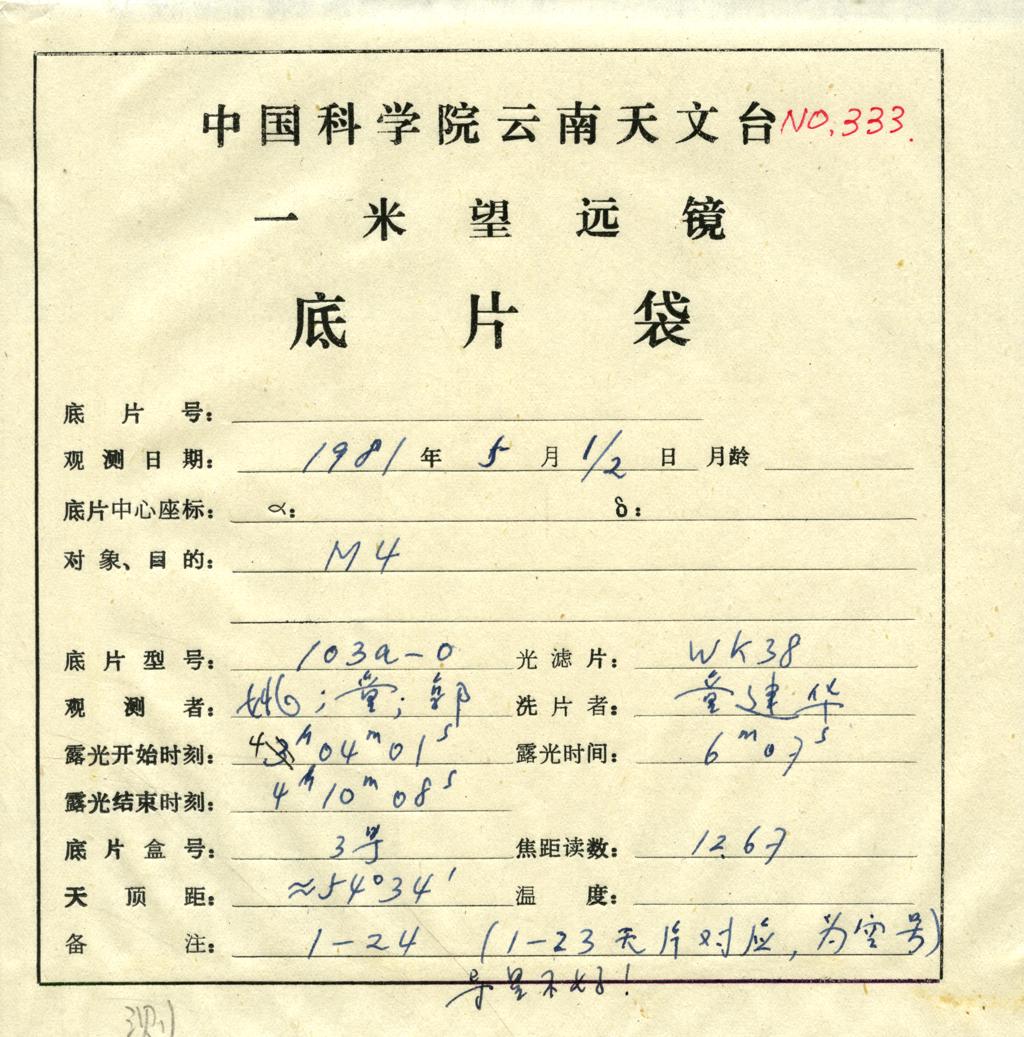 中国科学院云南天文台 NO.333.
一米望远镜
底片袋
底片号:
观测日期: 1981年 5月 1/2日 月龄
底片中心座标: α: δ:
对象、目的: M4
底片型号: 103a-O 光滤片: WK38
观测者: 姚;童;郭 洗片者: 童建华
露光开始时刻: 4h04m01s 露光时间: 6m07s
露光结束时刻: 4h10m08s
底片盒号: 3号 焦距读数: 12.67
天顶距: ≈54°34′ 温度:
备注: 1-24 (1-23无片对应,为空号)
导星不好!